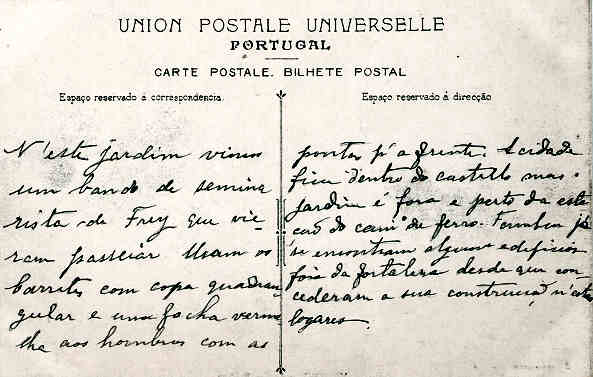 UNION POSTALE UNIVERSELLE
PORTUGAL
CARTE POSTALE. BILHETE POSTAL
Espaço reservado á correspondencia.
N'este jardim vimos
um bando de semina
rista de Frey que vie
ram passeiar Usam os
barretes com copa quadran
gular e uma facha verme
lha aos hombros com as
Espaço reservado á direcção
pontas p'a frente. A cidade
fica dentro do castello mas o
jardim é fora e perto da esta
ção do cam.º de ferro. Tambem já
se encontram alguns edificios
fora da fortaleza desde que con
cederam a sua construcção n'estes
logares.